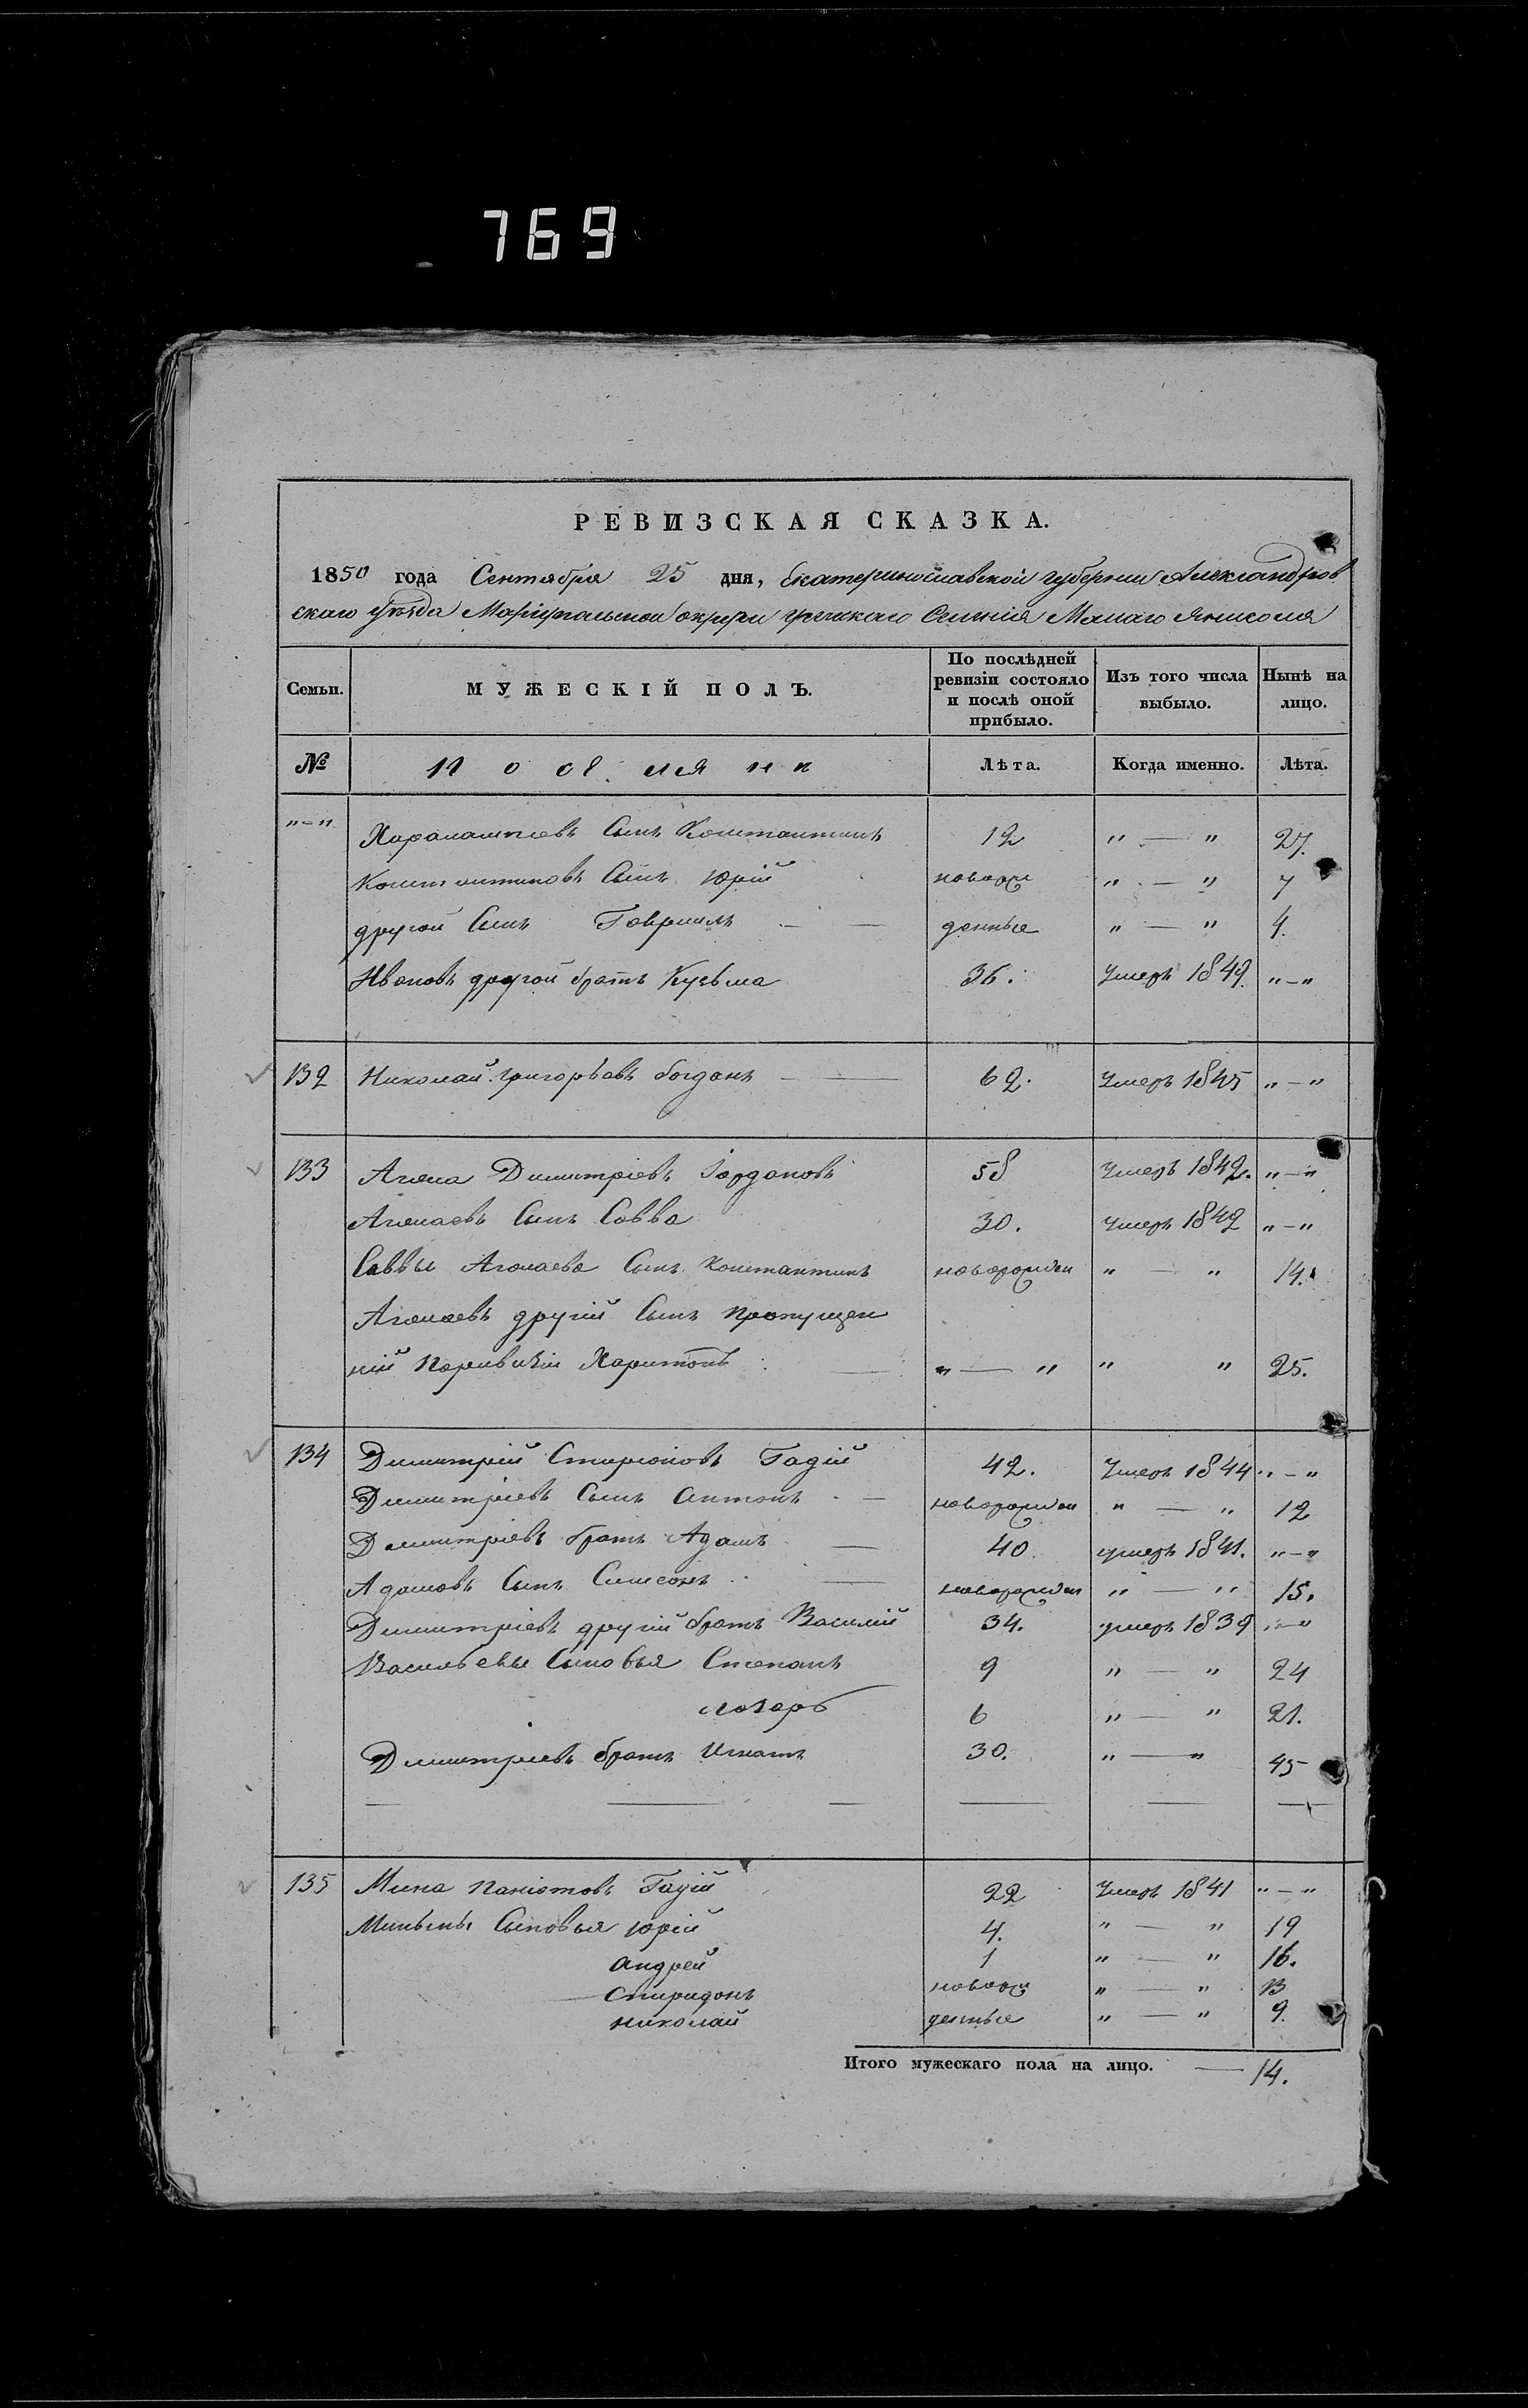 769
РЕВИЗСКАЯ СКАЗКА.
1850 года Сентября 25 дня, Екатеринославской губернии Александров
скаго уѣзда Маріупольской округи греческаго Селенія Малаго Янисоля
Семьи. МУЖЕСКІЙ ПОЛЪ. По послѣдней ревизіи состояло и послѣ оной прибыло. Изъ того числа выбыло. Нынѣ на лицо.
№ Поселяни Лѣта. Когда именно. Лѣта.
"-" Харалампіевъ Сынъ Константинъ 12 " — " 27.
Константиновъ Сынъ Юрій новоро " — " 7
другой Сынъ Гавріилъ — денные " — " 4.
Ивановъ другой братъ Кузьма 36. Умеръ 1849. "-"
132 Николай Григорьевъ Богданъ — 62. Умеръ 1845 "-"
133 Димитріевъ Іордановъ 58 Умеръ 1842. "-"
Сынъ Савва 30. Умеръ 1842 "-"
Саввы Сынъ Константинъ новорожден " — " 14.
другій Сынъ пропущен
ній Харитонъ — " — " " " 25.
134 Димитрій Гадій 42. Умеръ 1844 "-"
Димитріевъ Сынъ Антонъ — новорожден " — " 12
Димитріевъ братъ Адамъ — 40. умеръ 1841. "-"
Адамовъ Сынъ Симеонъ — новорожден " — " 15.
Димитріевъ другій братъ Василій 34. умеръ 1839 "-"
Васильевы Сыновья Степанъ 9 " — " 24
Лазарь 6 " — " 21.
Димитріевъ братъ Игнатъ 30. " — " 45
135 Мина Паніотовъ Гадій 22 Умеръ 1841 "-"
Минины Сыновья Юрій 4. " — " 19
Андрей 1 " — " 16.
Спиридонъ новоро " — " 13
Николай денные " — " 9.
Итого мужескаго пола на лицо. — 14.